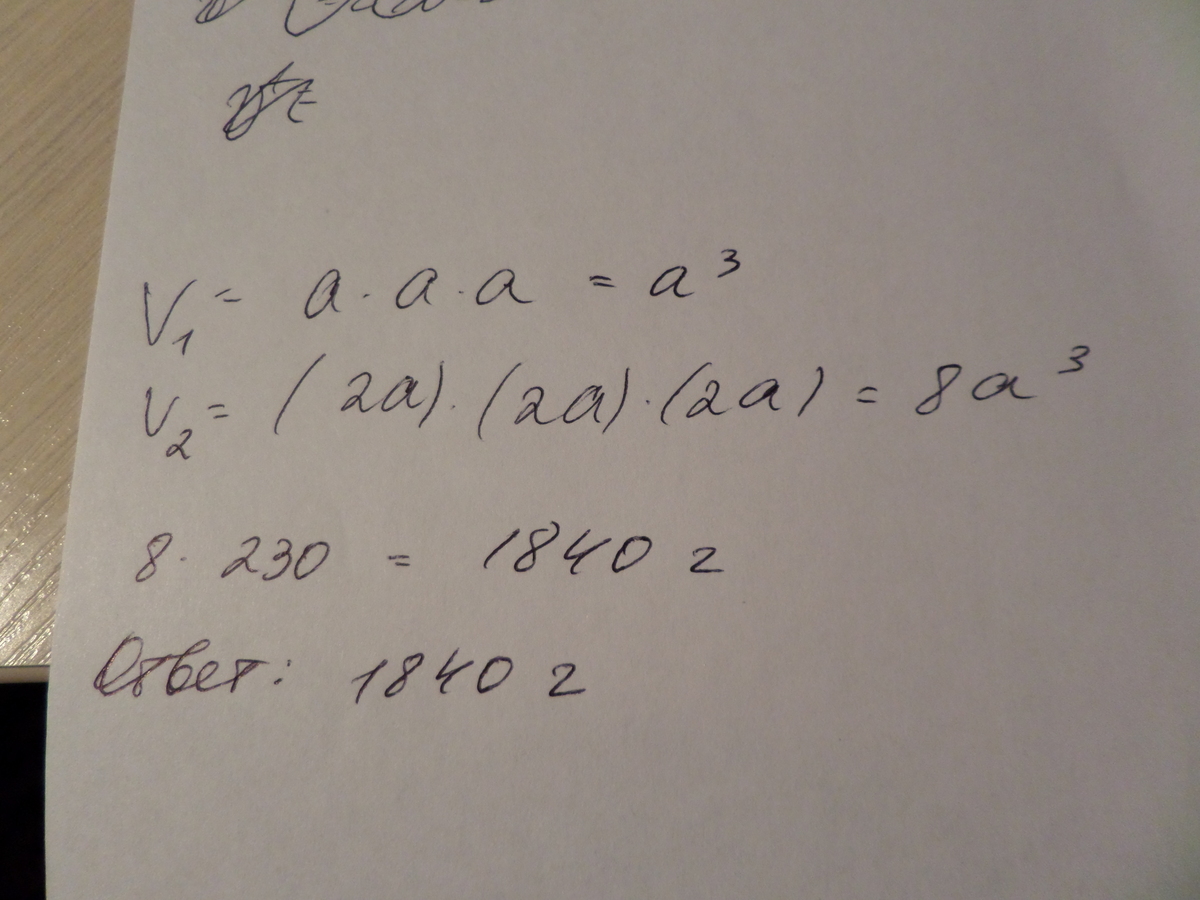 V₁ = a · a · a = a³
V₂ = (2a) · (2a) · (2a) = 8a³
8 · 230 = 1840 г
Ответ: 1840 г